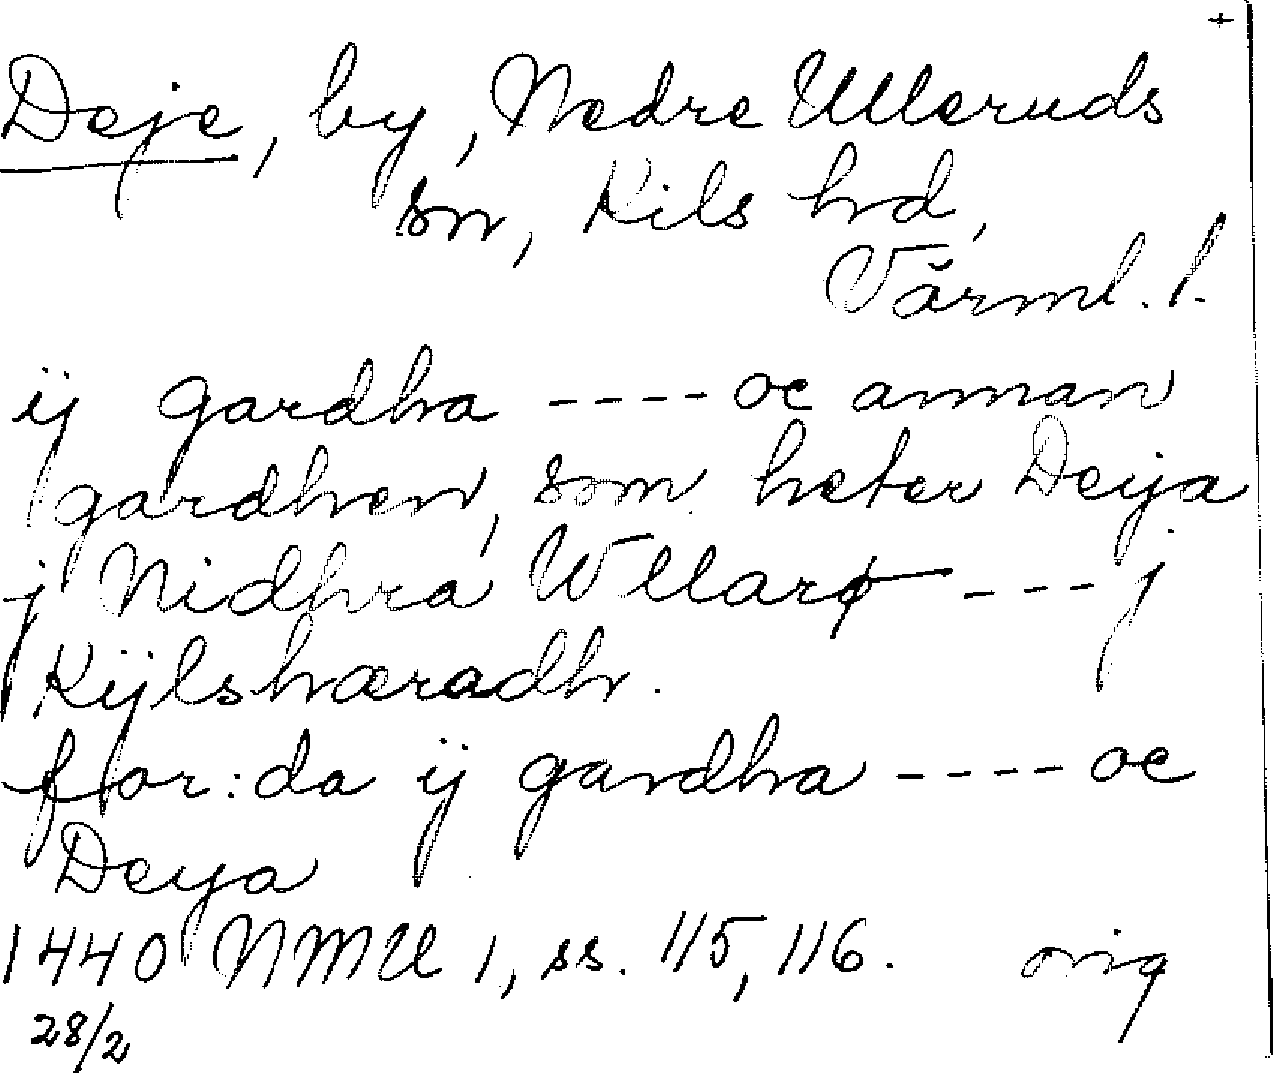 +
Deje, by, Nedre Ulleruds
sn, Kils hd,
Värml. l.
ij gardha ---- oc annan
gardhen, som heter Deya
j Nidhra Wllarø --- j
Kijlshæradh.
for:da ij gardha ---- oc
Deya
1440 NMU 1, ss. 115, 116. orig
28/2